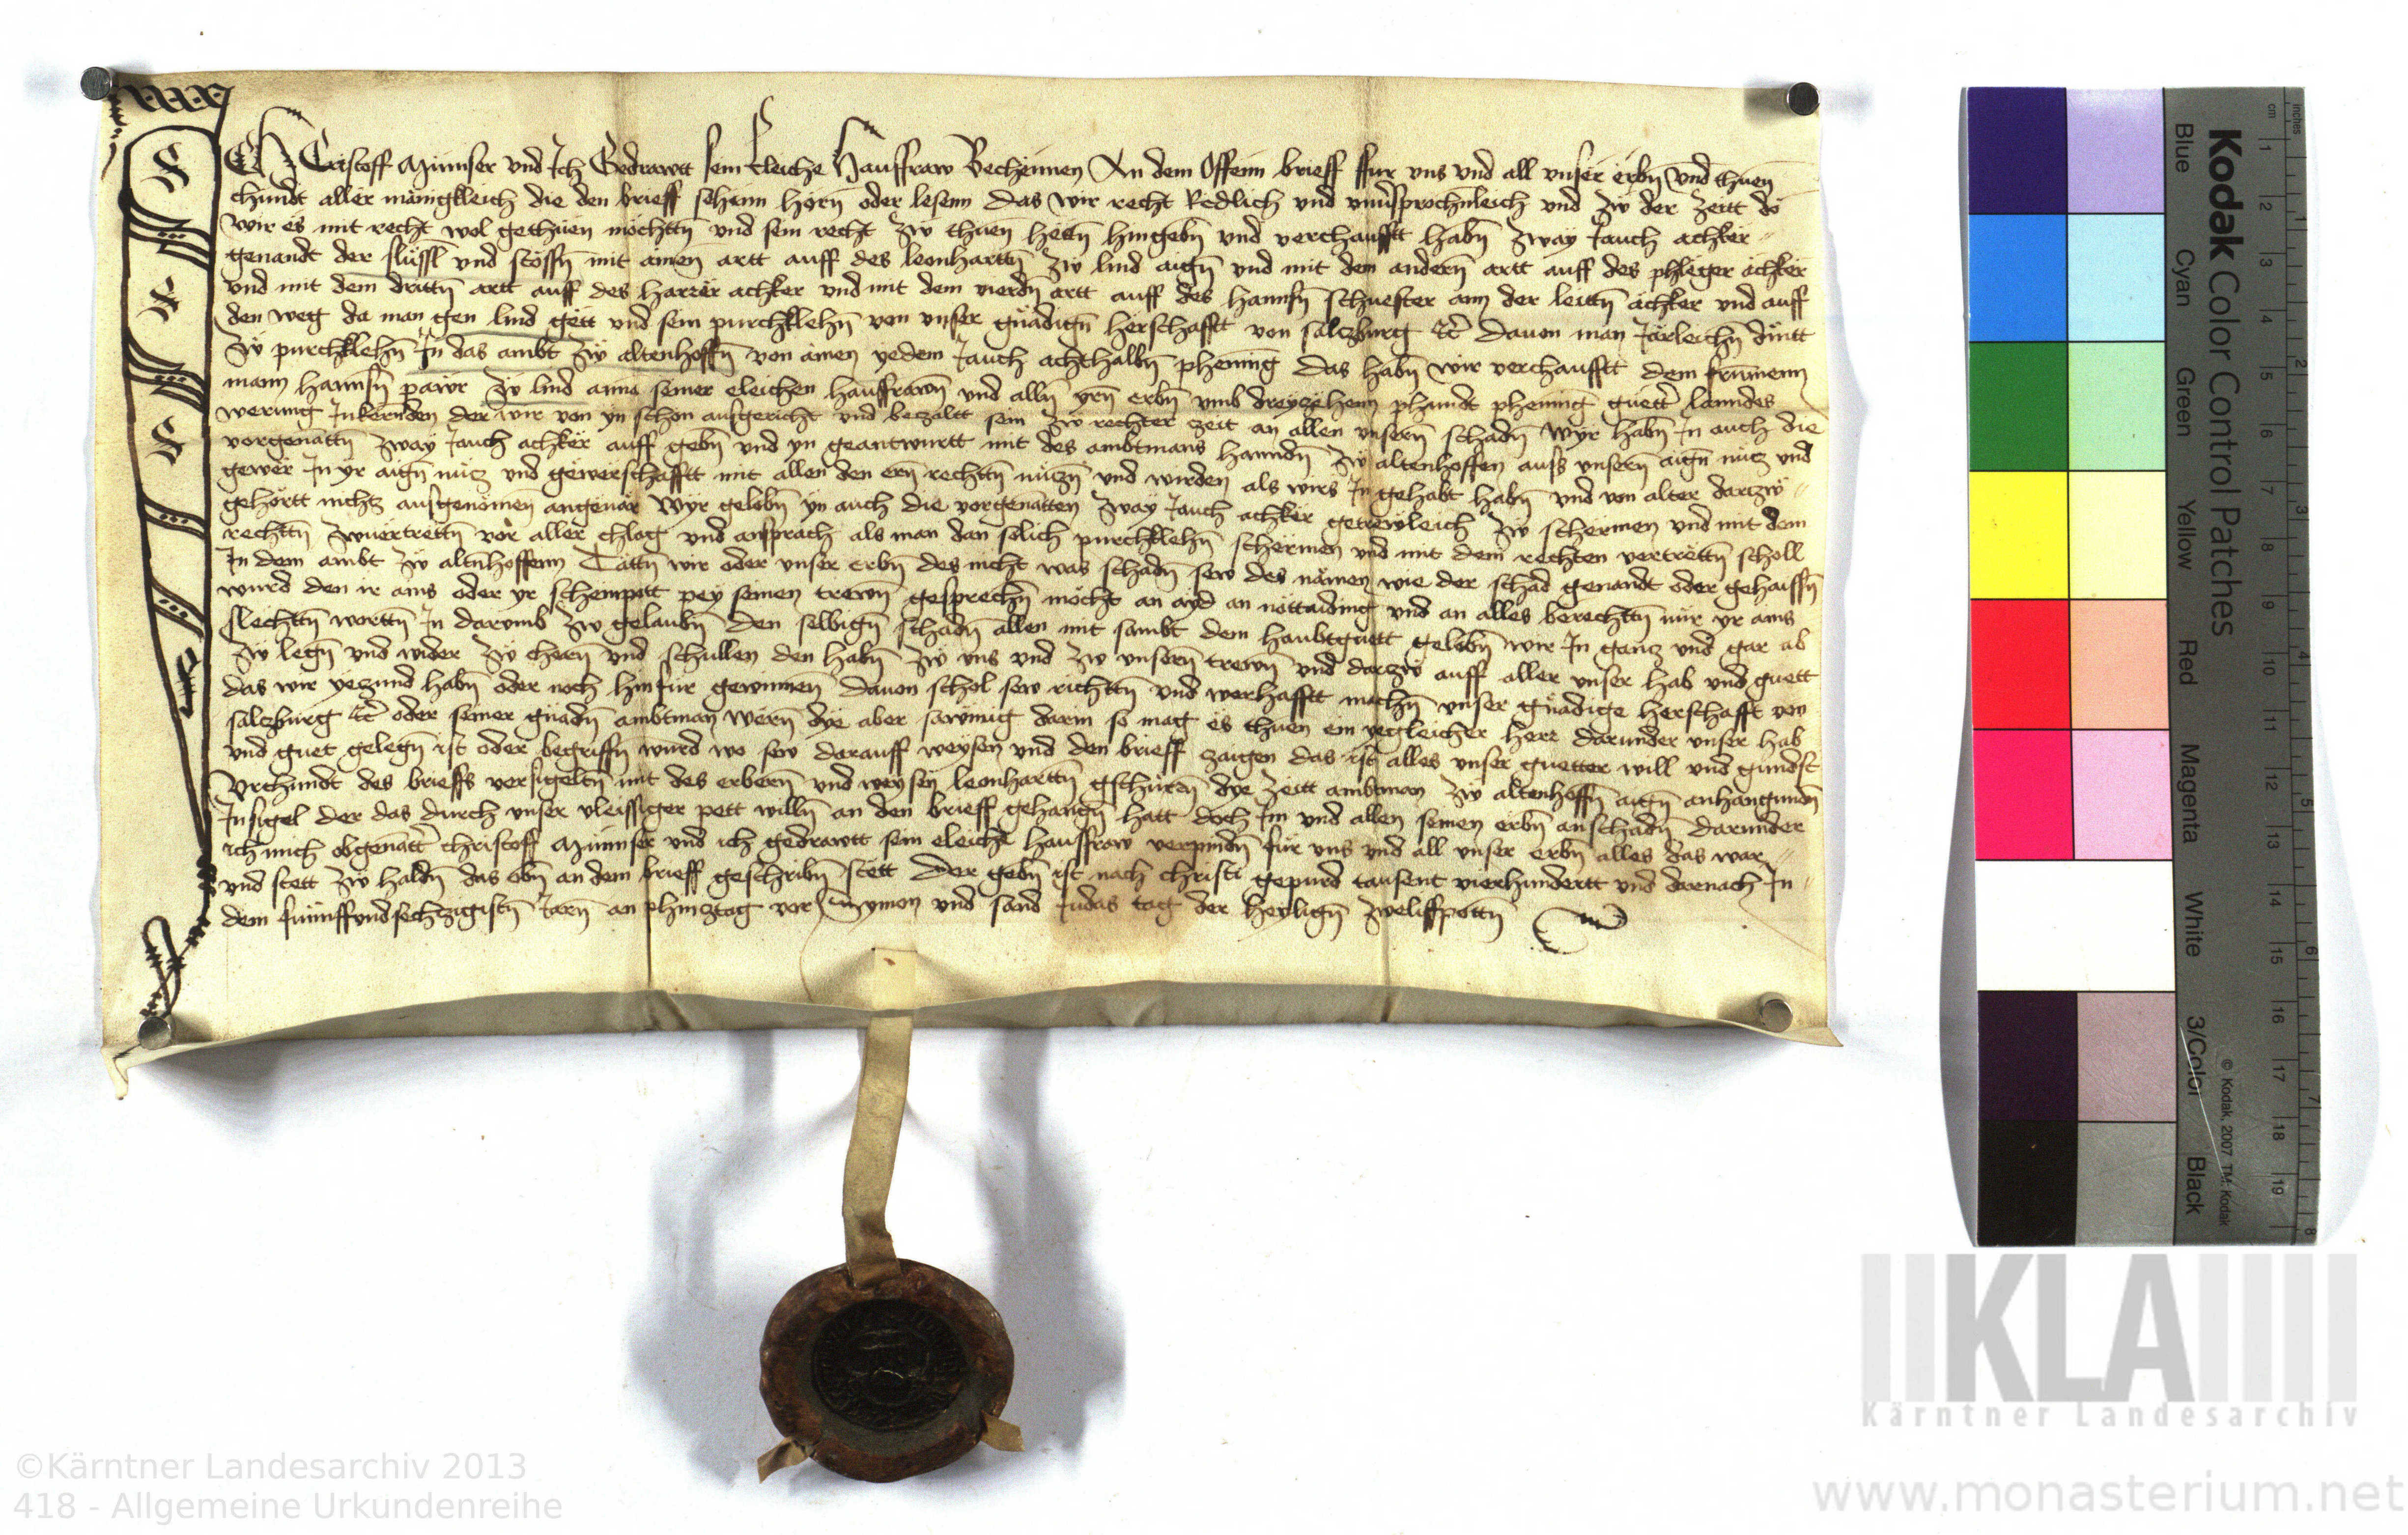 Ich Cristoff Münnser vnd Ich Gedrawtt sein eleiche Hausfraw Vechennen An dem Offenn brieff ffur vns vnd all vnser erbn̄ vnd thuen
chundt aller mänigkleich die den brieff sehenn horn̄ oder lesenn das wir recht Redlich vnd vnu͛sprochn̄leich vnd zw der zeitt do
wir es mit recht wol gethuen mochttn̄ vnd sein recht zw thuen hettn̄ hingebn̄ vnd verchaufftt habn̄ zway Jauch ackher
genandt der slüssl vnd stössn̄ mit ainen artt auff des leonharttn̄ zw lind aign̄ vnd mit dem andern̄ artt auff des phleger ackher
vnd mit dem drittn̄ artt auff des harrer ackher vnd mit dem vierdn̄ artt auff des hannsn̄ schuester ann der leittn̄ ackher vnd auff
den weg da man gen lind gett vnd sein purckhlehn̄ von vnser gnädign̄ herschafftt von salczburg etc̄ dauon man Järleichn̄ dintt
zw purckhlehn̄ In das ambt zw altenhoffn̄ von ainen yedem Jauch achthalbn̄ phening das habn̄ wir verchaufftt dem frümenn
mann hannsn̄ pawr zw lind anna seiner eleichen hausfrawn̄ vnd alln̄ yrn̄ erbn̄ vmb dreyzehenn phundt phening guett̄ lanndes
werung Inkernden der wir von yn schon ausgericht vnd bezaltt sein zw rechter zeit an allen vnsern̄ schadn̄ Wyr habn̄ In auch die
vorgenattn̄ zway Jauch ackher auff gebn̄ vnd yn geantwurtt mit des ambtmans hanndn̄ zw altenhoffen auss vnsern̄ aign̄ nucz vnd
gewer In yr aign̄ nucz vnd gewerschafftt mit allen den ern rechttn̄ nuczn̄ vnd wirden als wirs In gehabt habn̄ vnd von alter darzw
gehörtt nichtz ausgenömen angeuär Wyr gelobn̄ yn auch die vorgenatten zway Jauch ackher getrewleich zw schermen vnd mit dem
rechttn̄ zwuertrettn̄ vor aller chlag vnd ansprach als man dan solich purckhlehn̄ schermen vnd mit dem rechten vertrettn̄ scholl
In dem ambt zw altn̄hoffenn Tättn̄ wir oder vnser erbn̄ des nicht was schadn̄ sew des nämen wie der schad genandt oder gehaissn̄
wurd den ir ains oder yr scheinpott pey seinen trewn̄ gesprechn̄ mocht an ayd an nöttaiding vnd an alles berechttn̄ nur yr ains
slechttn̄ worttn̄ In darumb zw gelaubn̄ den selbign̄ schadn̄ allen mit sambt dem haubtguett gelobn̄ wir In gancz vnd gar ab
zw legn̄ vnd wider zw chern̄ vnd schullen den habn̄ zw vns vnd zw vnsern̄ trewn̄ vnd darzw auff aller vnser hab vnd guett
das wir yeczund habn̄ oder noch hinfur gewinnen dauon schol sew richttn̄ vnd werhafftt machn̄ vnser gnädige herschafft von
salczburg etc̄ oder seiner gnadn̄ ambtman wern̄ dye aber sawmig darin so mag es thuen ein yegleicher herr darunder vnser hab
vnd guet gelegn̄ ist oder begriffn̄ wurd wo sew darauff weysen vnd den brieff zaigen das ist alles vnser guetter will vnd gundst
Vrchundt des brieffs versigeltn̄ mit des erbern̄ vnd weysen leonharttn̄ gschurn̄ dye zeitt ambtman zw altenhoffn̄ aign̄ anhangundn̄
Insigel der das durch vnser vleissiger pett willn̄ an den brieff gehangn̄ hatt doch Im vnd allen seinen erbn̄ an schadn̄ darunder
ich mich obgenatt̄ christoff Münnser vnd ich gedrawtt sein eleiche hausfraw verpindn̄ für vns vnd all vnser erbn̄ alles das war
vnd stett zw haldn̄ das obn̄ an dem brieff geschribn̄ stett Der gebn̄ ist nach christi gepurd tausent vierhundertt vnd darnach In
dem funnffvndsechzigistn̄ Jarn̄ an phincztag vor Symon vnd sand Judas tag der heylign̄ zwelffpottn̄
Kodak Color Control Patches
Blue Cyan Green Yellow Red Magenta White 3/Color Black
© Kodak, 2007 TM: Kodak
cm 1 2 3 4 5 6 7 8 9 10 11 12 13 14 15 16 17 18 19
inches 1 2 3 4 5 6 7 8
KLA
Kärntner Landesarchiv
©Kärntner Landesarchiv 2013
418 - Allgemeine Urkundenreihe
www.monasterium.net